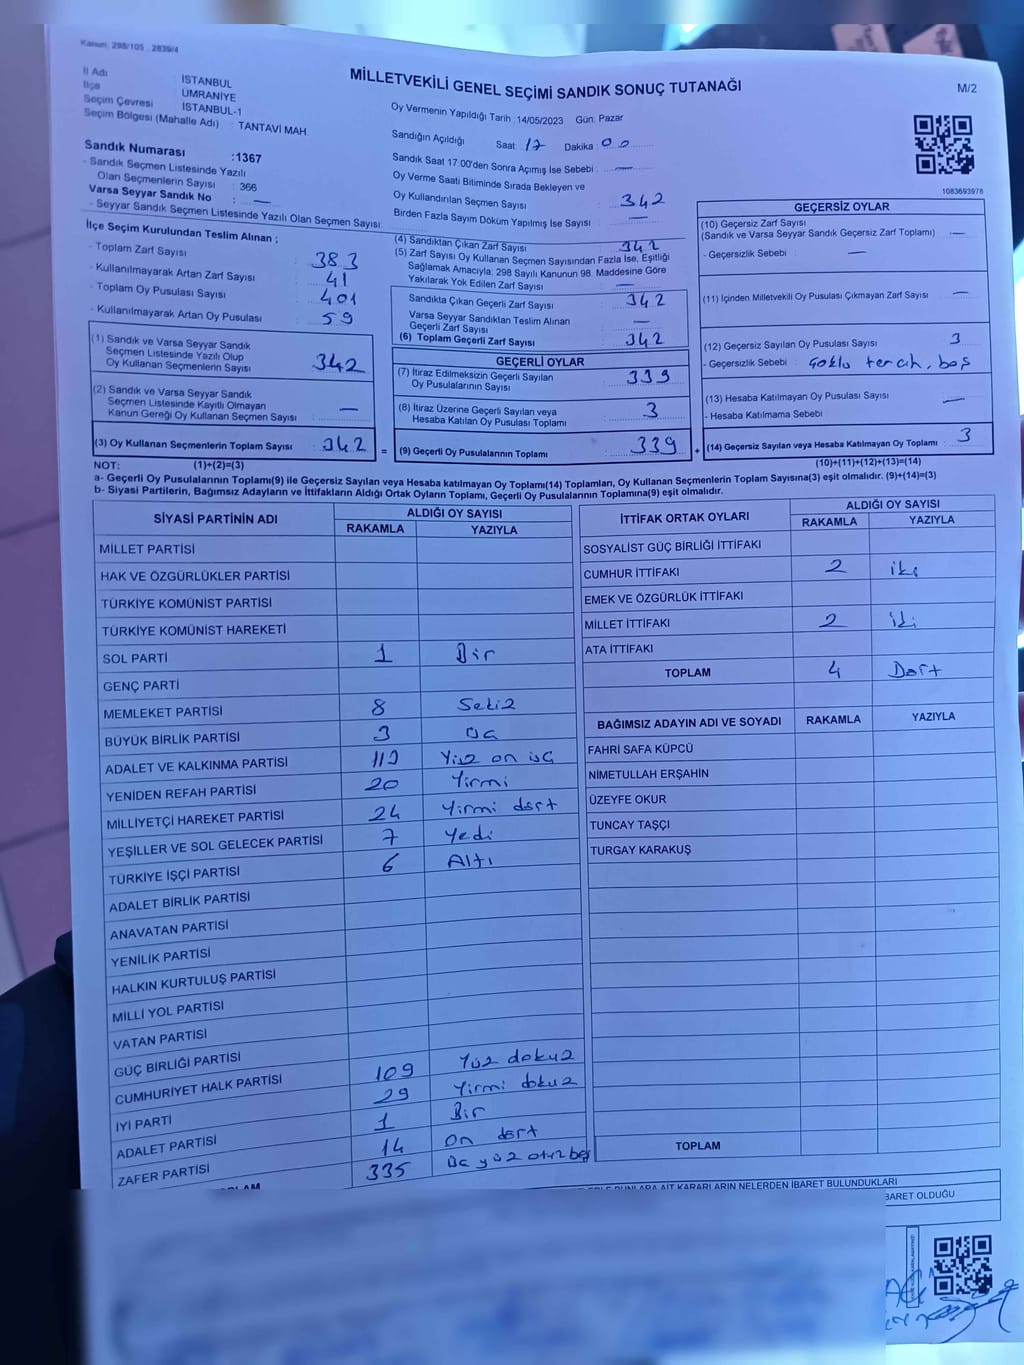 Kanun: 298/105 , 2839/4
MİLLETVEKİLİ GENEL SEÇİMİ SANDIK SONUÇ TUTANAĞI
M/2
İl Adı : İSTANBUL
İlçe : ÜMRANİYE
Seçim Çevresi : İSTANBUL-1
Seçim Bölgesi (Mahalle Adı) : TANTAVİ MAH.
Sandık Numarası :1367
- Sandık Seçmen Listesinde Yazılı
Olan Seçmenlerin Sayısı : 366
Varsa Seyyar Sandık No : —
- Seyyar Sandık Seçmen Listesinde Yazılı Olan Seçmen Sayısı:
Oy Vermenin Yapıldığı Tarih :14/05/2023 Gün: Pazar
Sandığın Açıldığı Saat: 17 Dakika: 00
Sandık Saat 17:00'den Sonra Açımış İse Sebebi : —
Oy Verme Saati Bitiminde Sırada Bekleyen ve
Oy Kullandırılan Seçmen Sayısı : 342
Birden Fazla Sayım Döküm Yapılmış İse Sayısı : —
1083693978
İlçe Seçim Kurulundan Teslim Alınan ;
- Toplam Zarf Sayısı : 383
- Kullanılmayarak Artan Zarf Sayısı : 41
- Toplam Oy Pusulası Sayısı : 401
- Kullanılmayarak Artan Oy Pusulası : 59
(1) Sandık ve Varsa Seyyar Sandık
Seçmen Listesinde Yazılı Olup
Oy Kullanan Seçmenlerin Sayısı : 342
(2) Sandık ve Varsa Seyyar Sandık
Seçmen Listesinde Kayıtlı Olmayan
Kanun Gereği Oy Kullanan Seçmen Sayısı : —
(3) Oy Kullanan Seçmenlerin Toplam Sayısı : 342
(4) Sandıktan Çıkan Zarf Sayısı : 342
(5) Zarf Sayısı Oy Kullanan Seçmen Sayısından Fazla İse, Eşitliği
Sağlamak Amacıyla, 298 Sayılı Kanunun 98. Maddesine Göre
Yakılarak Yok Edilen Zarf Sayısı : —
Sandıkta Çıkan Geçerli Zarf Sayısı : 342
Varsa Seyyar Sandıktan Teslim Alınan
Geçerli Zarf Sayısı : —
(6) Toplam Geçerli Zarf Sayısı : 342
GEÇERLİ OYLAR
(7) İtiraz Edilmeksizin Geçerli Sayılan
Oy Pusulalarının Sayısı : 339
(8) İtiraz Üzerine Geçerli Sayılan veya
Hesaba Katılan Oy Pusulası Toplamı : 3
= (9) Geçerli Oy Pusulalarının Toplamı : 339
GEÇERSİZ OYLAR
(10) Geçersiz Zarf Sayısı
(Sandık ve Varsa Seyyar Sandık Geçersiz Zarf Toplamı) : —
- Geçersizlik Sebebi : —
(11) İçinden Milletvekili Oy Pusulası Çıkmayan Zarf Sayısı : —
(12) Geçersiz Sayılan Oy Pusulası Sayısı : 3
- Geçersizlik Sebebi : Çoklu tercih, boş
(13) Hesaba Katılmayan Oy Pusulası Sayısı : —
- Hesaba Katılmama Sebebi
+ (14) Geçersiz Sayılan veya Hesaba Katılmayan Oy Toplamı : 3
NOT: (1)+(2)=(3)
(10)+(11)+(12)+(13)=(14)
a- Geçerli Oy Pusulalarının Toplamı(9) ile Geçersiz Sayılan veya Hesaba katılmayan Oy Toplamı(14) Toplamları, Oy Kullanan Seçmenlerin Toplam Sayısına(3) eşit olmalıdır. (9)+(14)=(3)
b- Siyasi Partilerin, Bağımsız Adayların ve İttifakların Aldığı Ortak Oyların Toplamı, Geçerli Oy Pusulalarının Toplamına(9) eşit olmalıdır.
SİYASİ PARTİNİN ADI ALDIĞI OY SAYISI
RAKAMLA YAZIYLA
MİLLET PARTİSİ
HAK VE ÖZGÜRLÜKLER PARTİSİ
TÜRKİYE KOMÜNİST PARTİSİ
TÜRKİYE KOMÜNİST HAREKETİ
SOL PARTİ 1 Bir
GENÇ PARTİ
MEMLEKET PARTİSİ 8 Sekiz
BÜYÜK BİRLİK PARTİSİ 3 Üç
ADALET VE KALKINMA PARTİSİ 113 Yüz on üç
YENİDEN REFAH PARTİSİ 20 Yirmi
MİLLİYETÇİ HAREKET PARTİSİ 24 Yirmi dört
YEŞİLLER VE SOL GELECEK PARTİSİ 7 Yedi
TÜRKİYE İŞÇİ PARTİSİ 6 Altı
ADALET BİRLİK PARTİSİ
ANAVATAN PARTİSİ
YENİLİK PARTİSİ
HALKIN KURTULUŞ PARTİSİ
MİLLİ YOL PARTİSİ
VATAN PARTİSİ
GÜÇ BİRLİĞİ PARTİSİ
CUMHURİYET HALK PARTİSİ 109 Yüz dokuz
İYİ PARTİ 29 Yirmi dokuz
ADALET PARTİSİ 1 Bir
ZAFER PARTİSİ 14 On dört
335 Üç yüz otuz beş
İTTİFAK ORTAK OYLARI ALDIĞI OY SAYISI
RAKAMLA YAZIYLA
SOSYALİST GÜÇ BİRLİĞİ İTTİFAKI
CUMHUR İTTİFAKI 2 iki
EMEK VE ÖZGÜRLÜK İTTİFAKI
MİLLET İTTİFAKI 2 iki
ATA İTTİFAKI
TOPLAM 4 Dört
BAĞIMSIZ ADAYIN ADI VE SOYADI RAKAMLA YAZIYLA
FAHRİ SAFA KÜPCÜ
NİMETULLAH ERŞAHİN
ÜZEYFE OKUR
TUNCAY TAŞÇI
TURGAY KARAKUŞ
TOPLAM
KARARLARIN NELERDEN İBARET BULUNDUKLARI
İBARET OLDUĞU